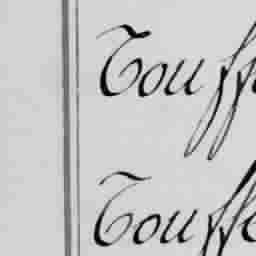 Touffe
Touffe